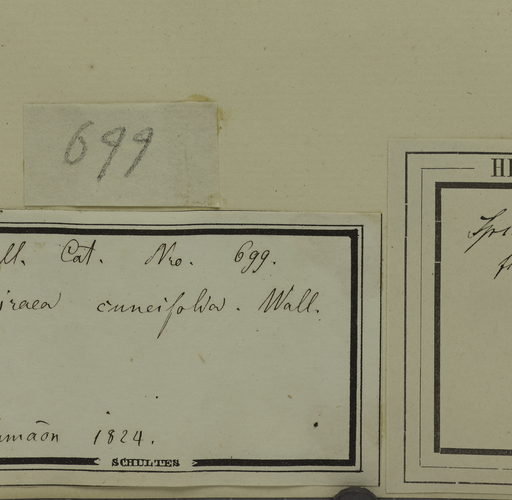 699
ll. Cat. Nro. 699.
iraea cuneifolia. Wall.
amāon 1824.
SCHULTES
HE
Spi